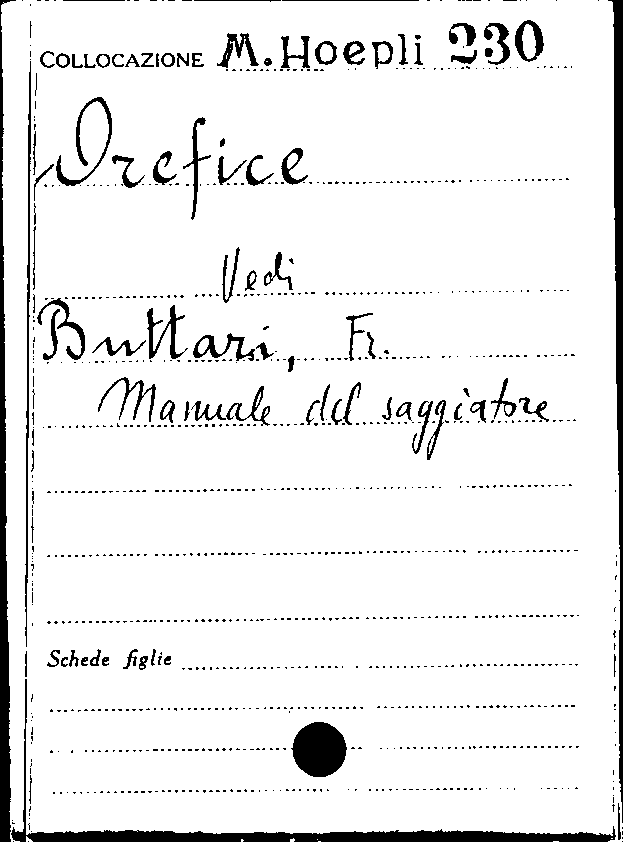 COLLOCAZIONE M. Hoepli 230
Orefice
Vedi
Buttari, Fr.
Manuale del saggiatore
Schede figlie